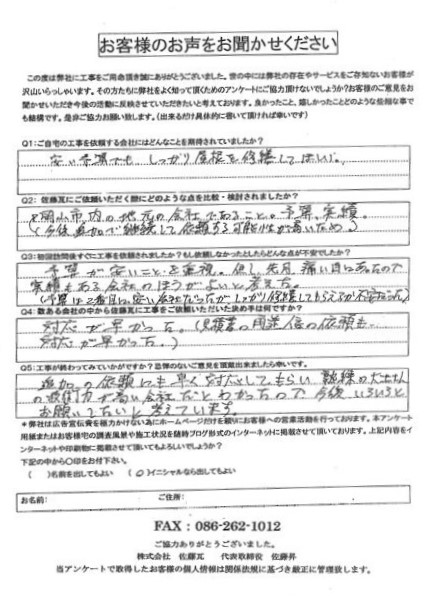 お客様のお声をお聞かせください
この度は弊社に工事をご用命頂き誠にありがとうございました。世の中には弊社の存在やサービスをご存知ないお客様が
沢山いらっしゃいます。その方たちに弊社をよく知っていただくためのアンケートにご協力頂けないでしょうか?お客様のご意見をお
聞かせいただき今後の活動に反映させていただきたいと考えております。良かったこと、嬉しかったことどのような些細な事で
も結構です。是非ご協力お願い致します。(出来るだけ具体的に書いて頂ければ幸いです)
Q1:ご自宅の工事を依頼する会社にはどんなことを期待されていましたか?
安い予算でも しっかり屋根を修繕してほしい。
Q2: 佐藤瓦にご依頼いただく際にどのような点を比較・検討されましたか?
岡山市内の地元の会社であること。予算、実績。
(今後追加で継続して依頼する可能性が高いため。)
Q3:初回訪問後すぐに工事を依頼されましたか?もし依頼しなかったとしたらどんな点が不安でしたか?
予算が安いことを重視。但し、先月、痛い目にあったので
実績もある会社のほうがよいと考えた。
(予算は2番目に安い会社だったが しっかり修繕してもらえるか不安だった)
Q4:数ある会社の中から佐藤瓦に工事をご依頼いただいた決め手は何ですか?
対応が早かった。(見積書の 依頼も
対応が早かった。)
Q5:工事が終わってみていかがですか?忌憚のないご意見を頂戴出来ましたら幸いです。
追加の依頼にも早く対応してもらい 熟練の大工さん
の技術力が高い会社だとわかったので 今後いろいろと
お願いしたいと考えています。
*弊社は広告宣伝費を極力かけない為にホームページだけを頼りにお客様への営業活動を行っております。本アンケート
用紙またはお客様宅の調査風景や施工状況を随時ブログ形式のインターネットに掲載させて頂いております。上記内容をイ
ンターネットや印刷物に掲載させて頂いてもよろしいでしょうか?
下記の中から○印をお付下さい。
( )名前を出してもよい (○)イニシャルなら出してもよい
お名前: ご住所:
FAX:086-262-1012
ご協力ありがとうございました。
株式会社 佐藤瓦 代表取締役 佐藤昇
当アンケートで取得したお客様の個人情報は関係法規に基づき厳正に管理致します。